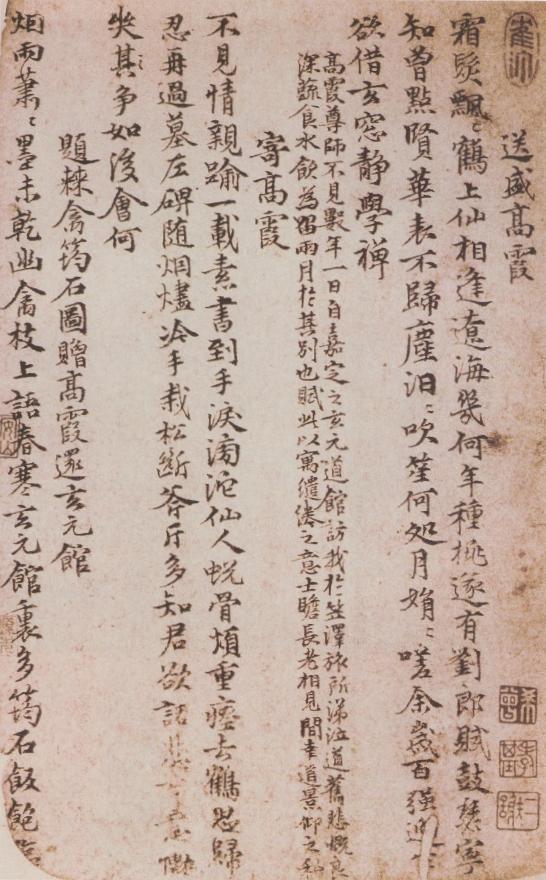 送盛高霞
霜髮飄〻鶴上仙相逢遼海幾何年種桃還有劉郎賦鼓瑟寧
知曾點賢華表不歸塵汩〻吹笙何処月娟〻嗟余歲百強
欲借玄窓靜學禅
高霞尊師不見數年一日自嘉定之玄元道館訪我於笠澤旅所涕泣道舊悲慨良
深蔬食水飲為留兩月於其別也賦此以寓繾綣之意士瞻長老相見間幸道景仰之私
寄高霞
不見情親踰一載素書到手淚滂沱仙人蛻骨煩重瘞去鶴思歸
忍再過墓左碑随烟燼冷手栽松斷斧斤多知君欲話悲
哭其争如後會何
題棘禽筠石圖贈高霞還玄元館
烟雨蕭〻墨未乾幽禽枝上語春寒玄元館裏多筠石飯飽臨